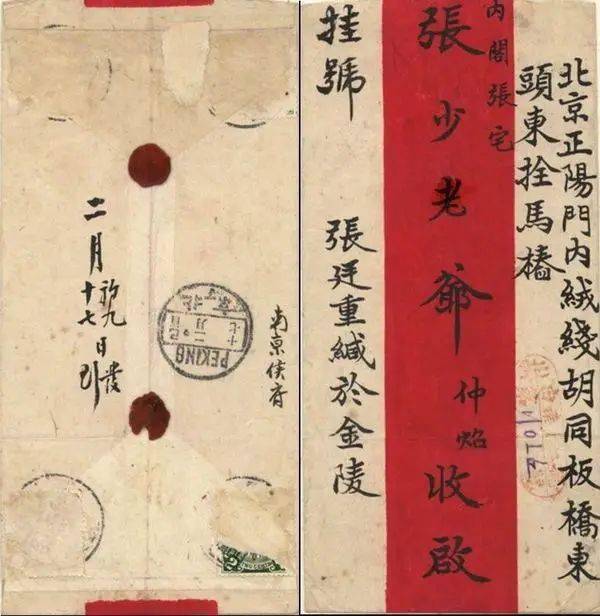 北京正陽門內絨綫胡同板橋東
頭東拴馬樁
內閣張宅
張少老爺仲焰收啟
挂號
張廷重緘於金陵
南京
二月初九日發
十七到
PEKING